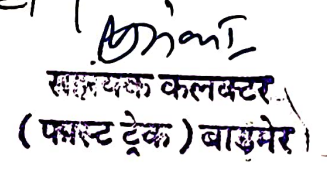 सहायक कलक्टर
( फास्ट ट्रेक ) बाड़मेर।